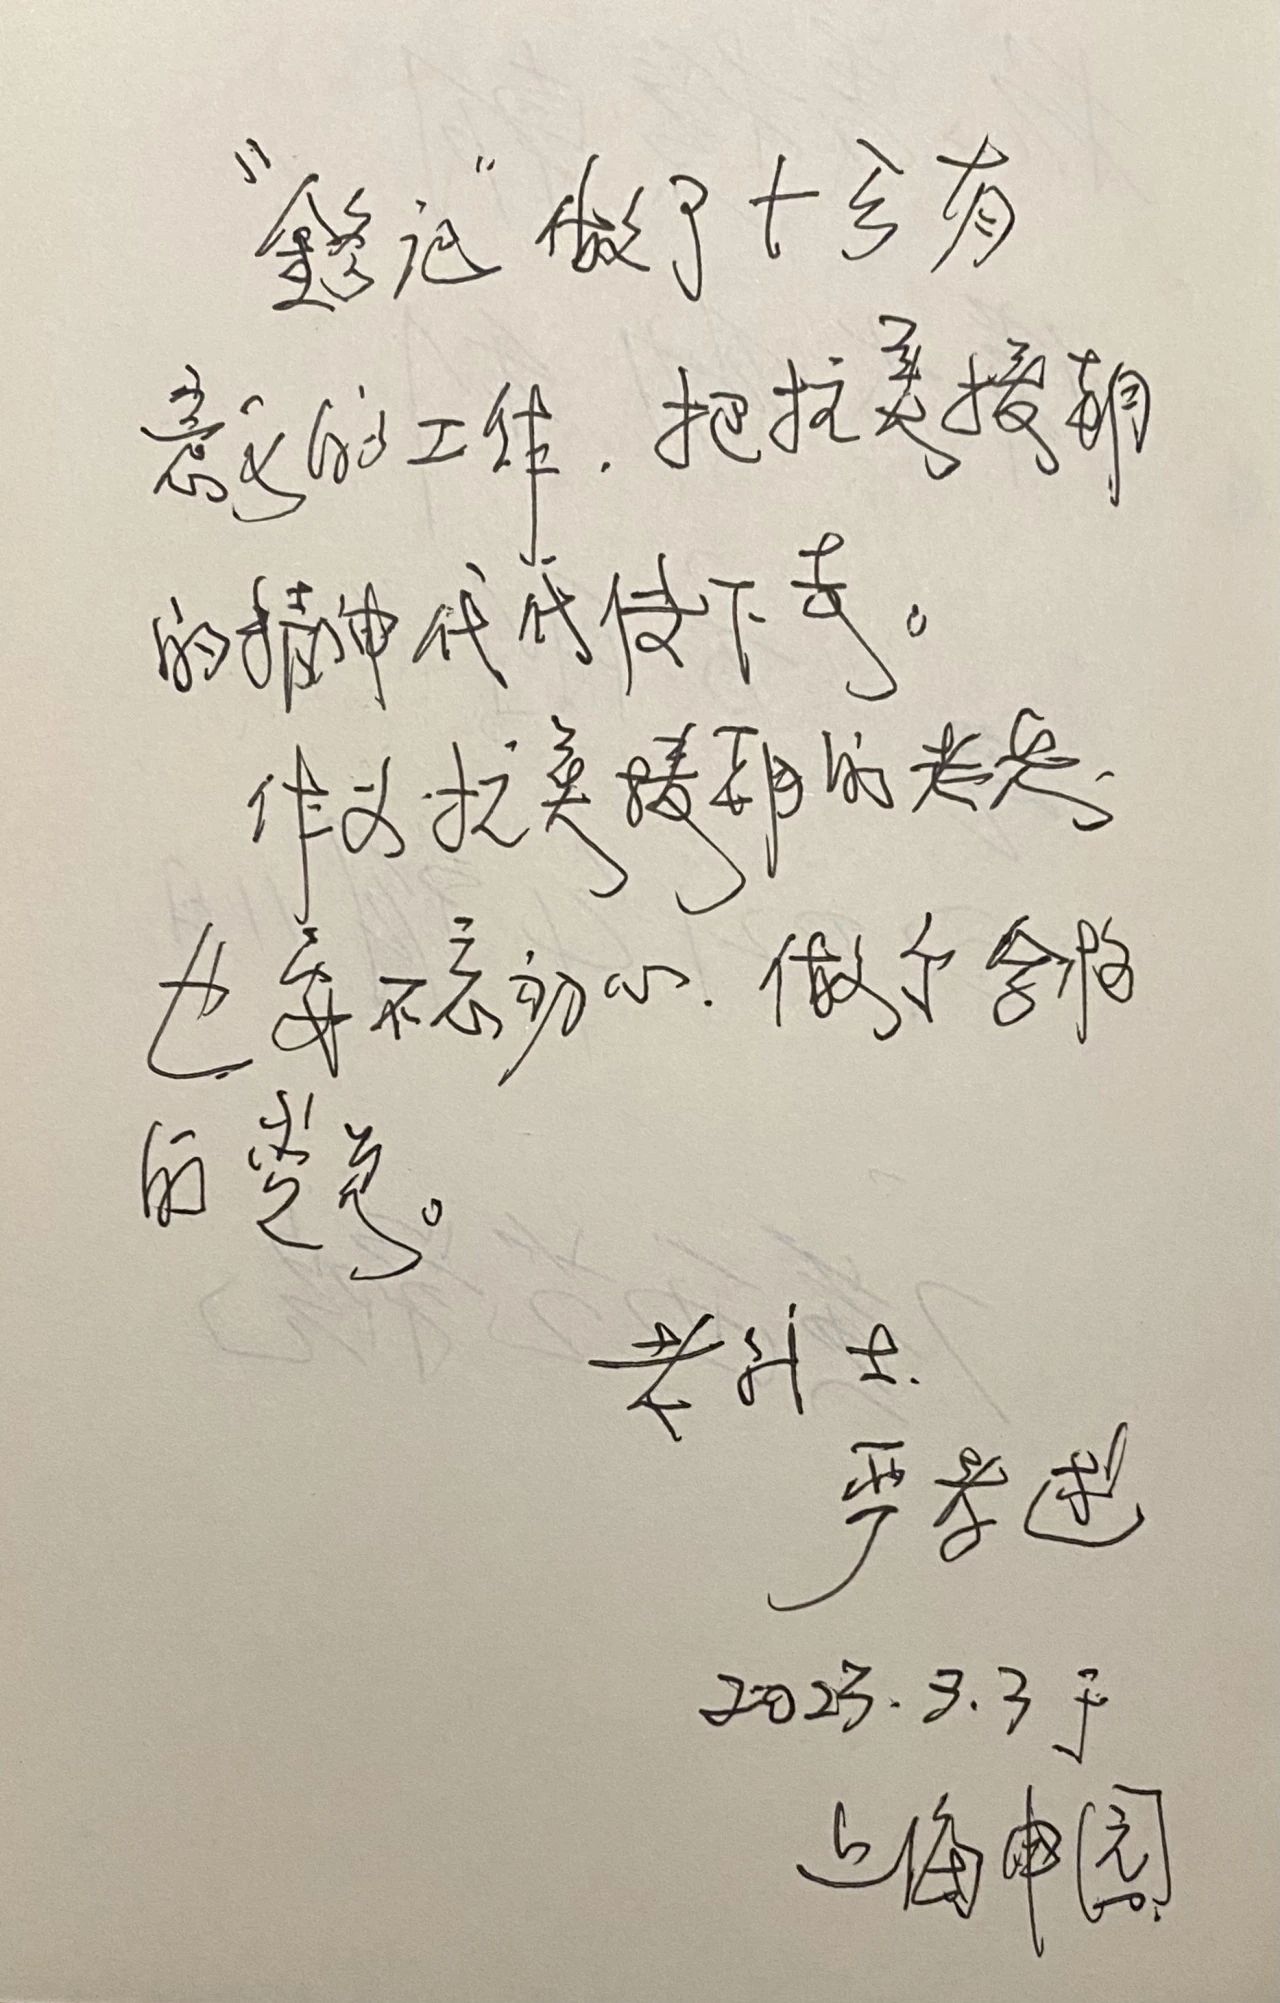 "錾记"做了十分有
意义的工作，把抗美援朝
的精神代代传下去。
作为抗美援朝的老兵、
也要不忘初心，做个合格
的党员。
老斗士.
严孝达
2023.3.3于
上海申园